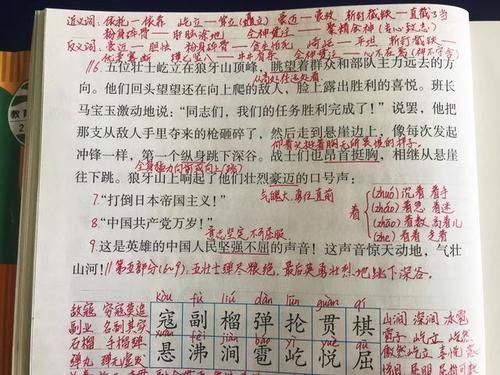 近义词：依托—依靠 屹立—耸立(矗立) 豪迈—豪放 斩钉截铁—直截了当
粉身碎骨—肝脑涂地 全神贯注—聚精会神(专心致志)
反义词：豪迈—胆怯 粉身碎骨—贪生怕死 崎岖—平坦 斩钉截铁—
优柔寡断 全神贯注—心不在焉
//6.五位壮士屹立在狼牙山顶峰，眺望着群众和部队主力远去的方
从高处往远处看
向。他们回头望望还在向上爬的敌人，脸上露出胜利的喜悦。班长
马宝玉激动地说：“同志们，我们的任务胜利完成了！”说罢，他把
那支从敌人手里夺来的枪砸碎了，然后走到悬崖边上，像每次发起
仰着头挺着胸无所畏惧的样子
冲锋一样，第一个纵身跳下深谷。战士们也昂首挺胸，相继从悬崖
全身猛力向前或向上(跳)
往下跳。狼牙山上响起了他们壮烈豪迈的口号声：
气魄大，勇往直前
7.“打倒日本帝国主义！”
8.“中国共产党万岁！”
意志坚定不可屈服
着
(zhuó)沉着 着手
(zháo)着急 着迷
(zhāo)着数 高着儿
(zhe)看着 走着
9.这是英雄的中国人民坚强不屈的声音！这声音惊天动地，气壮
山河！//第五部分(6-9)，五壮士弹尽粮绝，最后英勇壮烈地跳下深谷。
kòu fù liú dàn lūn guàn qí
敌寇 穷寇莫追
寇 副 榴 弹 抡 贯 棋
山涧 深涧 冰雹
副业 名副其实
石榴 手榴弹
悬 沸 涧 雹 屹 悦 屈
傲然屹立 喜悦
弹丸